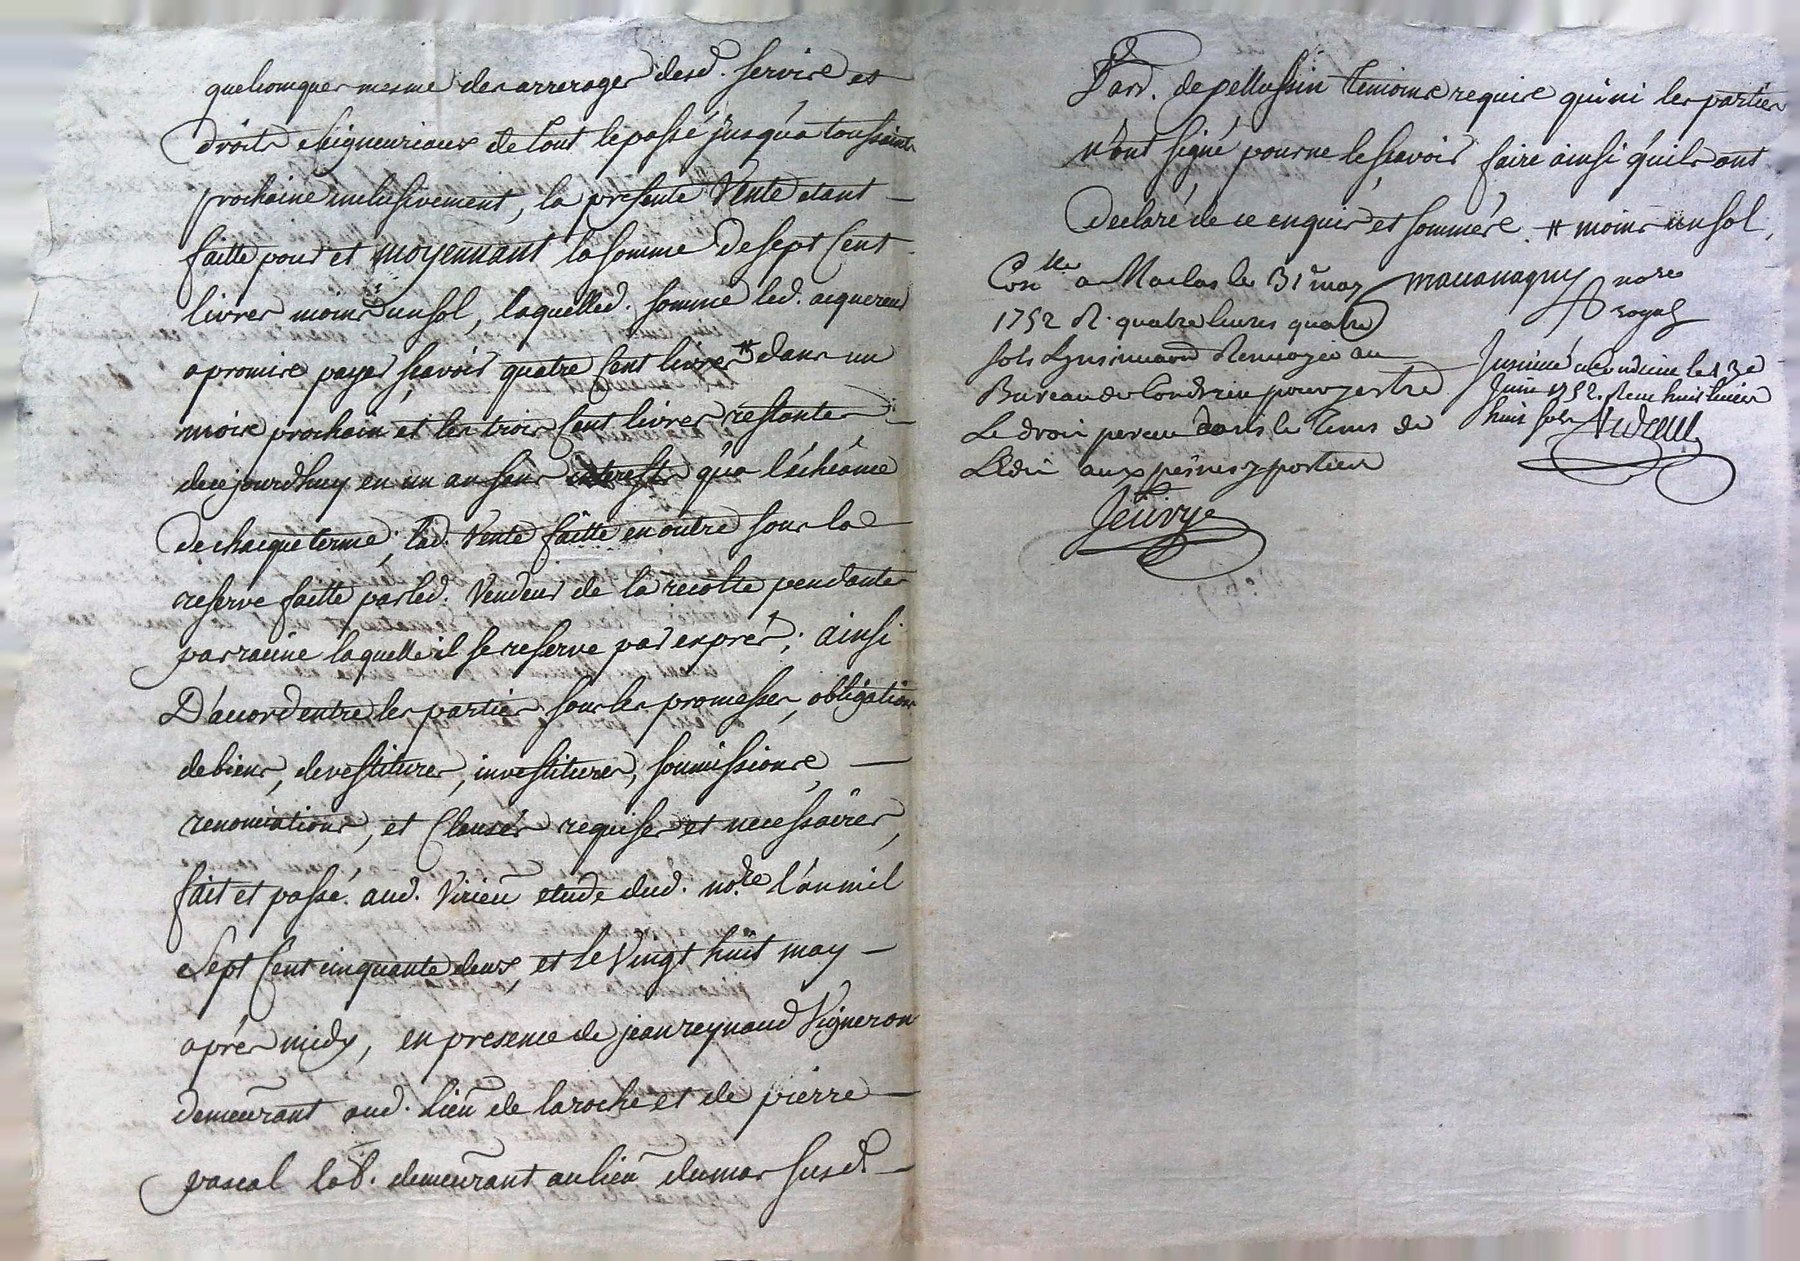 quelconques mesme des arrerages desd. servis et
droits seigneuriaux de tout le passé jusqu'a toussaints
prochaine inclusivement, la presente Vente etant
faitte pour et moyennant la somme de sept Cent
livres moins un sol, laquelled. somme led. acquereur
a promis payer scavoir quatre Cent livres # dans un
mois prochain et les trois Cent livres restantes
de ce jourdhuy en un an sans interests qu'a l'échéance
de chacque terme, lad. Vente faitte en outre sous la
reserve faitte par led. Vendeur de la recolte pendante
par racine laquelle il se reserve par exprés; ainsi
D'accord entre les parties sous les promesses, obligations
de biens, devestitures, investitures, soumissions,
renonciations, et Clauses requises et necessaires,
fait et passé aud. Virieu etude dud. no.re l'an mil
Sept Cent cinquante deux, et le Vingt huit may
aprés midy, en presence de jean reynaud Vigneron
demeurant aud. lieu de laroche et de pierre
pascal lab. demeurant au lieu dumas susd.
Parr. de pellussin temoins requis qui ni les parties
n'ont signé pour ne le scavoir faire ainsi qu'ils ont
declaré de ce enquis et sommés. # moins un sol,
Con.lle a Maclas le 31 may
1752 R. quatre livres quatre
sols & renvoyé au
Bureau de Condrieu pour y estre
Le droit perceu dans le tems de
L'edit aux peines y portées
nore
royal
Insinué a Condrieu le 13e
Juin 1752. Receu huit livres
huit sols